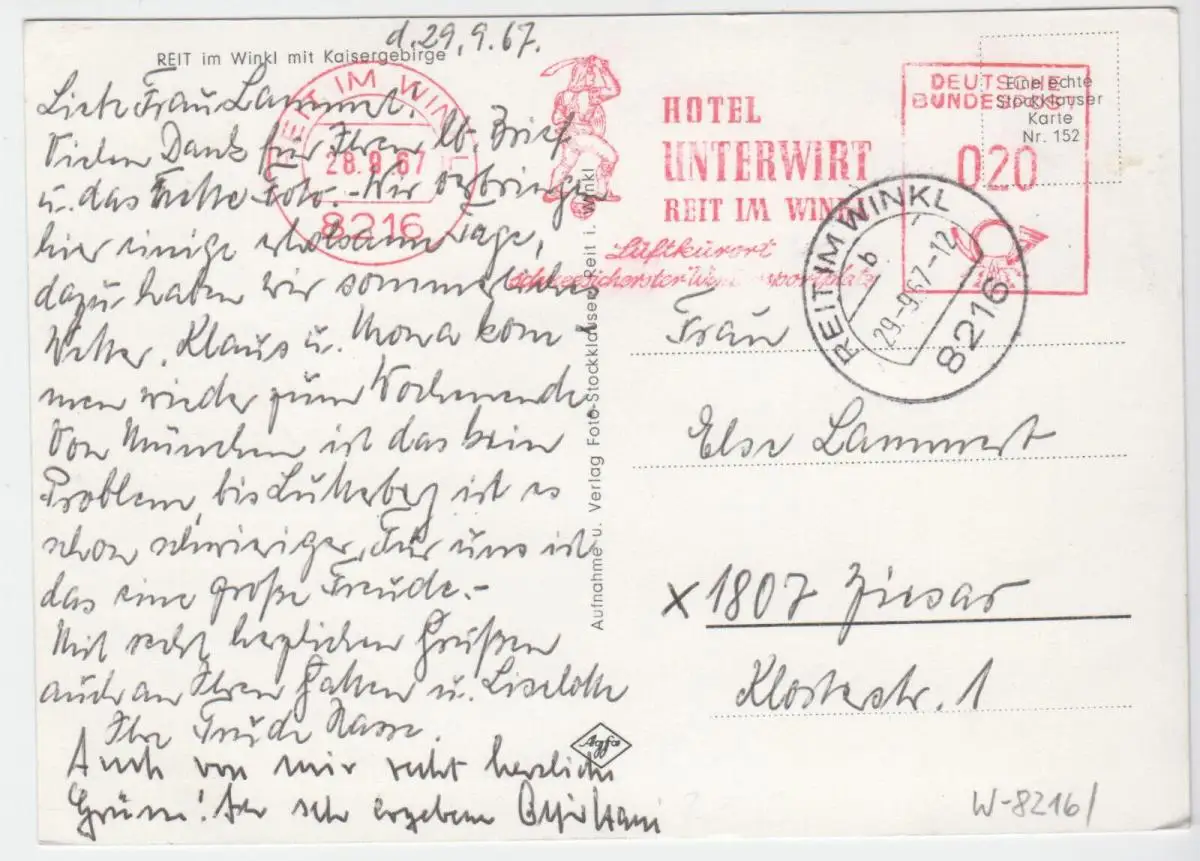 d. 29.9.67.
REIT im Winkl mit Kaisergebirge
Liebe Frau Lammert!
Vielen Dank für Ihren lb. Brief
u. das nette Foto. - Wir verbringen
hier einige erholsame Tage,
dazu haben wir sommerliches
Wetter. Klaus u. Mona kom
men wieder zum Wochenende
Von München ist das kein
Problem, bis Lutterberg ist es
schon schwieriger. Für uns ist
das eine große Freude.-
Mit recht herzlichen Grüßen
auch an Ihren Gatten u. Liselotte
Ihre Trude
Auch von mir recht herzliche
Grüße! Ihr sehr ergebener
REIT IM WINKL
28.9.67
8216
HOTEL
UNTERWIRT
REIT IM WINKL
Luftkurort
schneesicherster Wintersportplatz
DEUTSCHE
BUNDESPOST
020
Eine echte
Stocklauser
Karte
Nr. 152
REIT IM WINKL
b
29.-9.67-12
8216
Aufnahme u. Verlag Foto-Stockklauser, Reit i. Winkl
Frau
Else Lammert
x 1807 Ziesar
Klosterstr. 1
Agfa
W-8216/